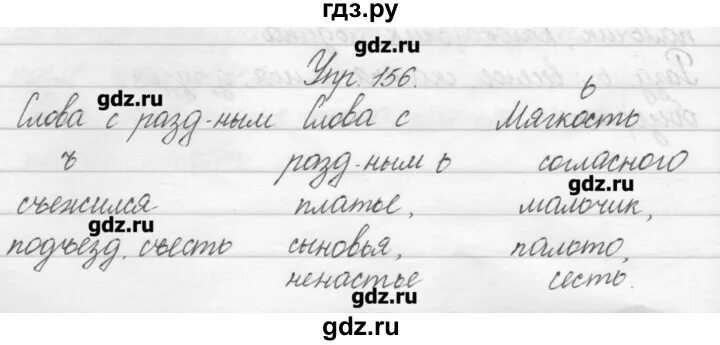 гдз.ру
gdz.ru
Упр. 156.
gdz.ru
gdz.ru
Слова с разд-ным ъ
съежился
gdz.ru
подъезд, съесть
Слова с разд-ным ь
платье,
сыновья,
ненастье
ь
Мягкость согласного
gdz.ru
мальчик,
пальто,
сесть.
gdz.ru
gdz.ru